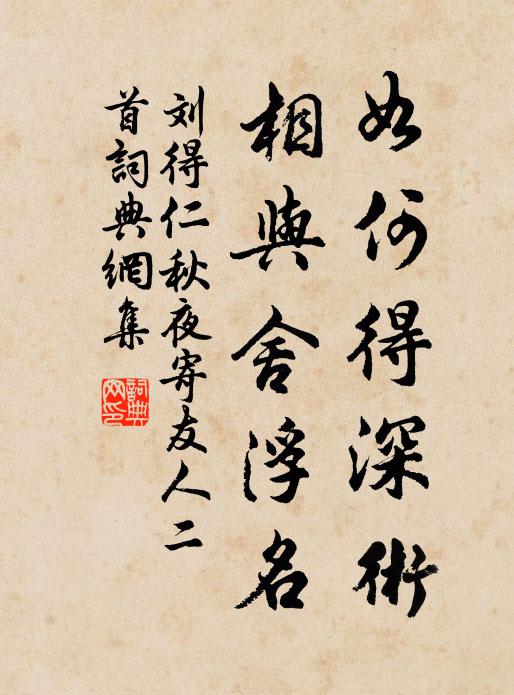 如何得深術
相與舍浮名
刘得仁秋夜寄友人二
首詞典網集
詞典
网印